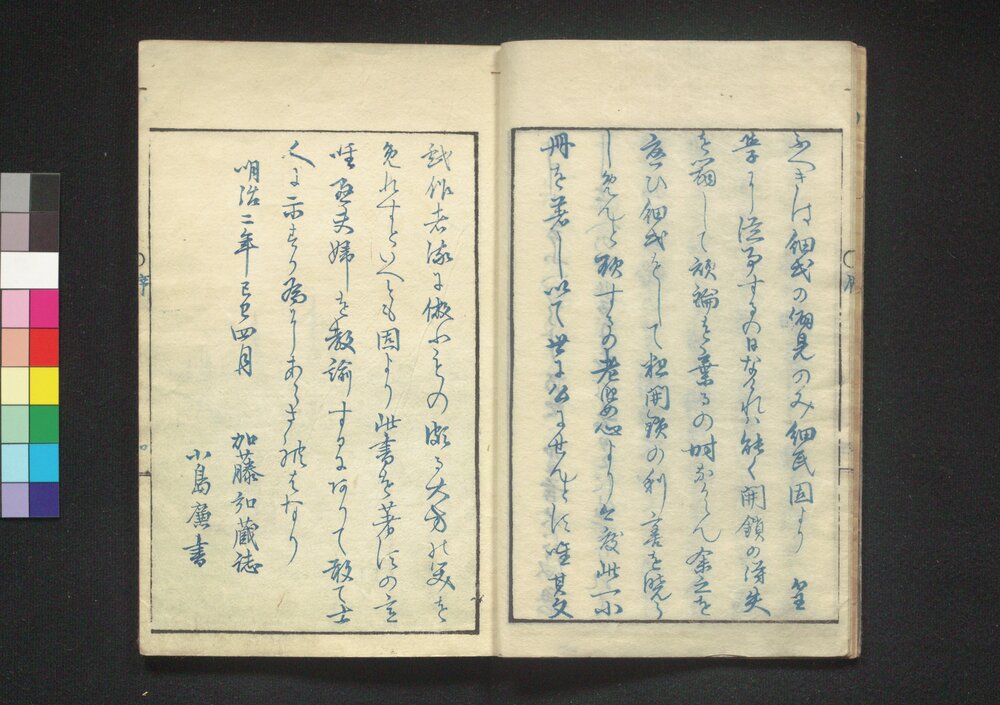 ふへきは細民の偏見のみ細民固より
學に從事するの日なけれは能く開鎖の得失
を辯して頑論を棄るの時なからん余之を
憂ひ細民をして粗開鎖の利害を曉ら
しめんと欲するの老婆心より今度此一小
冊を著し以て世に公にせんとす唯其文
戯作者流に倣ふものゆゑ大方の笑を
免れすといへとも固より此書を著すの意
唯愚夫婦を教諭するにありて敢て士
人に示すか為にあらされはなり
明治二年己巳四月
加藤弘蔵誌
小島廉書